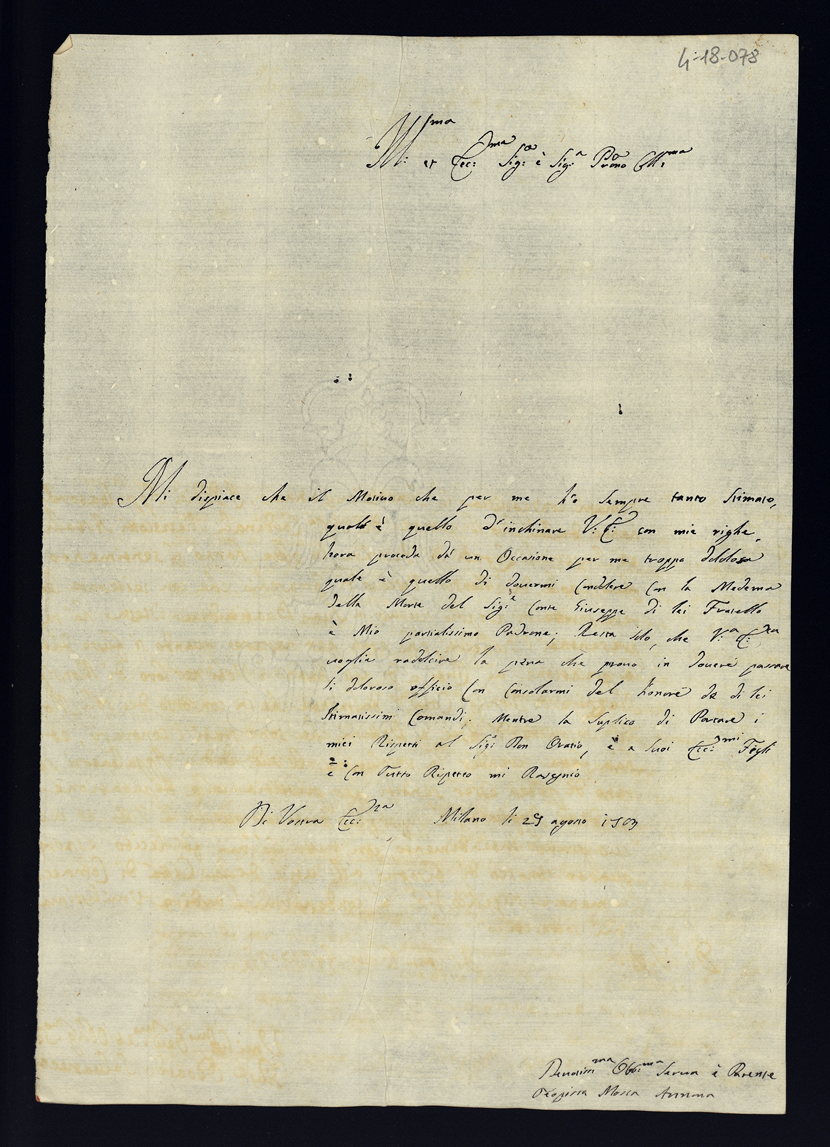 4-18-078
Ill:ma et Ecc:ma Sig:ra è Sig:ra Prona Coll:ma
Mi dispiace che il Motivo che per me hò sempre tanto stimato,
quale è quello d'inchinare V: E: con mie righe,
hora proceda dà un Occasione per me troppo dolorosa
quale è quello di dovermi condolere con la Medema
della Morte del Sig:r Conte Giuseppe di lei Fratello
è Mio parzialissimo Padrone; Resta solo, che V:a E:za
voglia radolcire la pena che provo in dovere passare
li doloroso officio con consolarmi del honore de di lei
stimatissimi Comandi. Mentre la suplico di Portare i
miei Rispetti al Sig:r Don Oratio, è a suoi Ecc:mi Figli
è con tutto Rispetto mi Rasegnio
Di Vostra Ecc:za Milano li 29 agosto 1703
Devotissi:ma Obb:ma Serva è Parente
Mossa